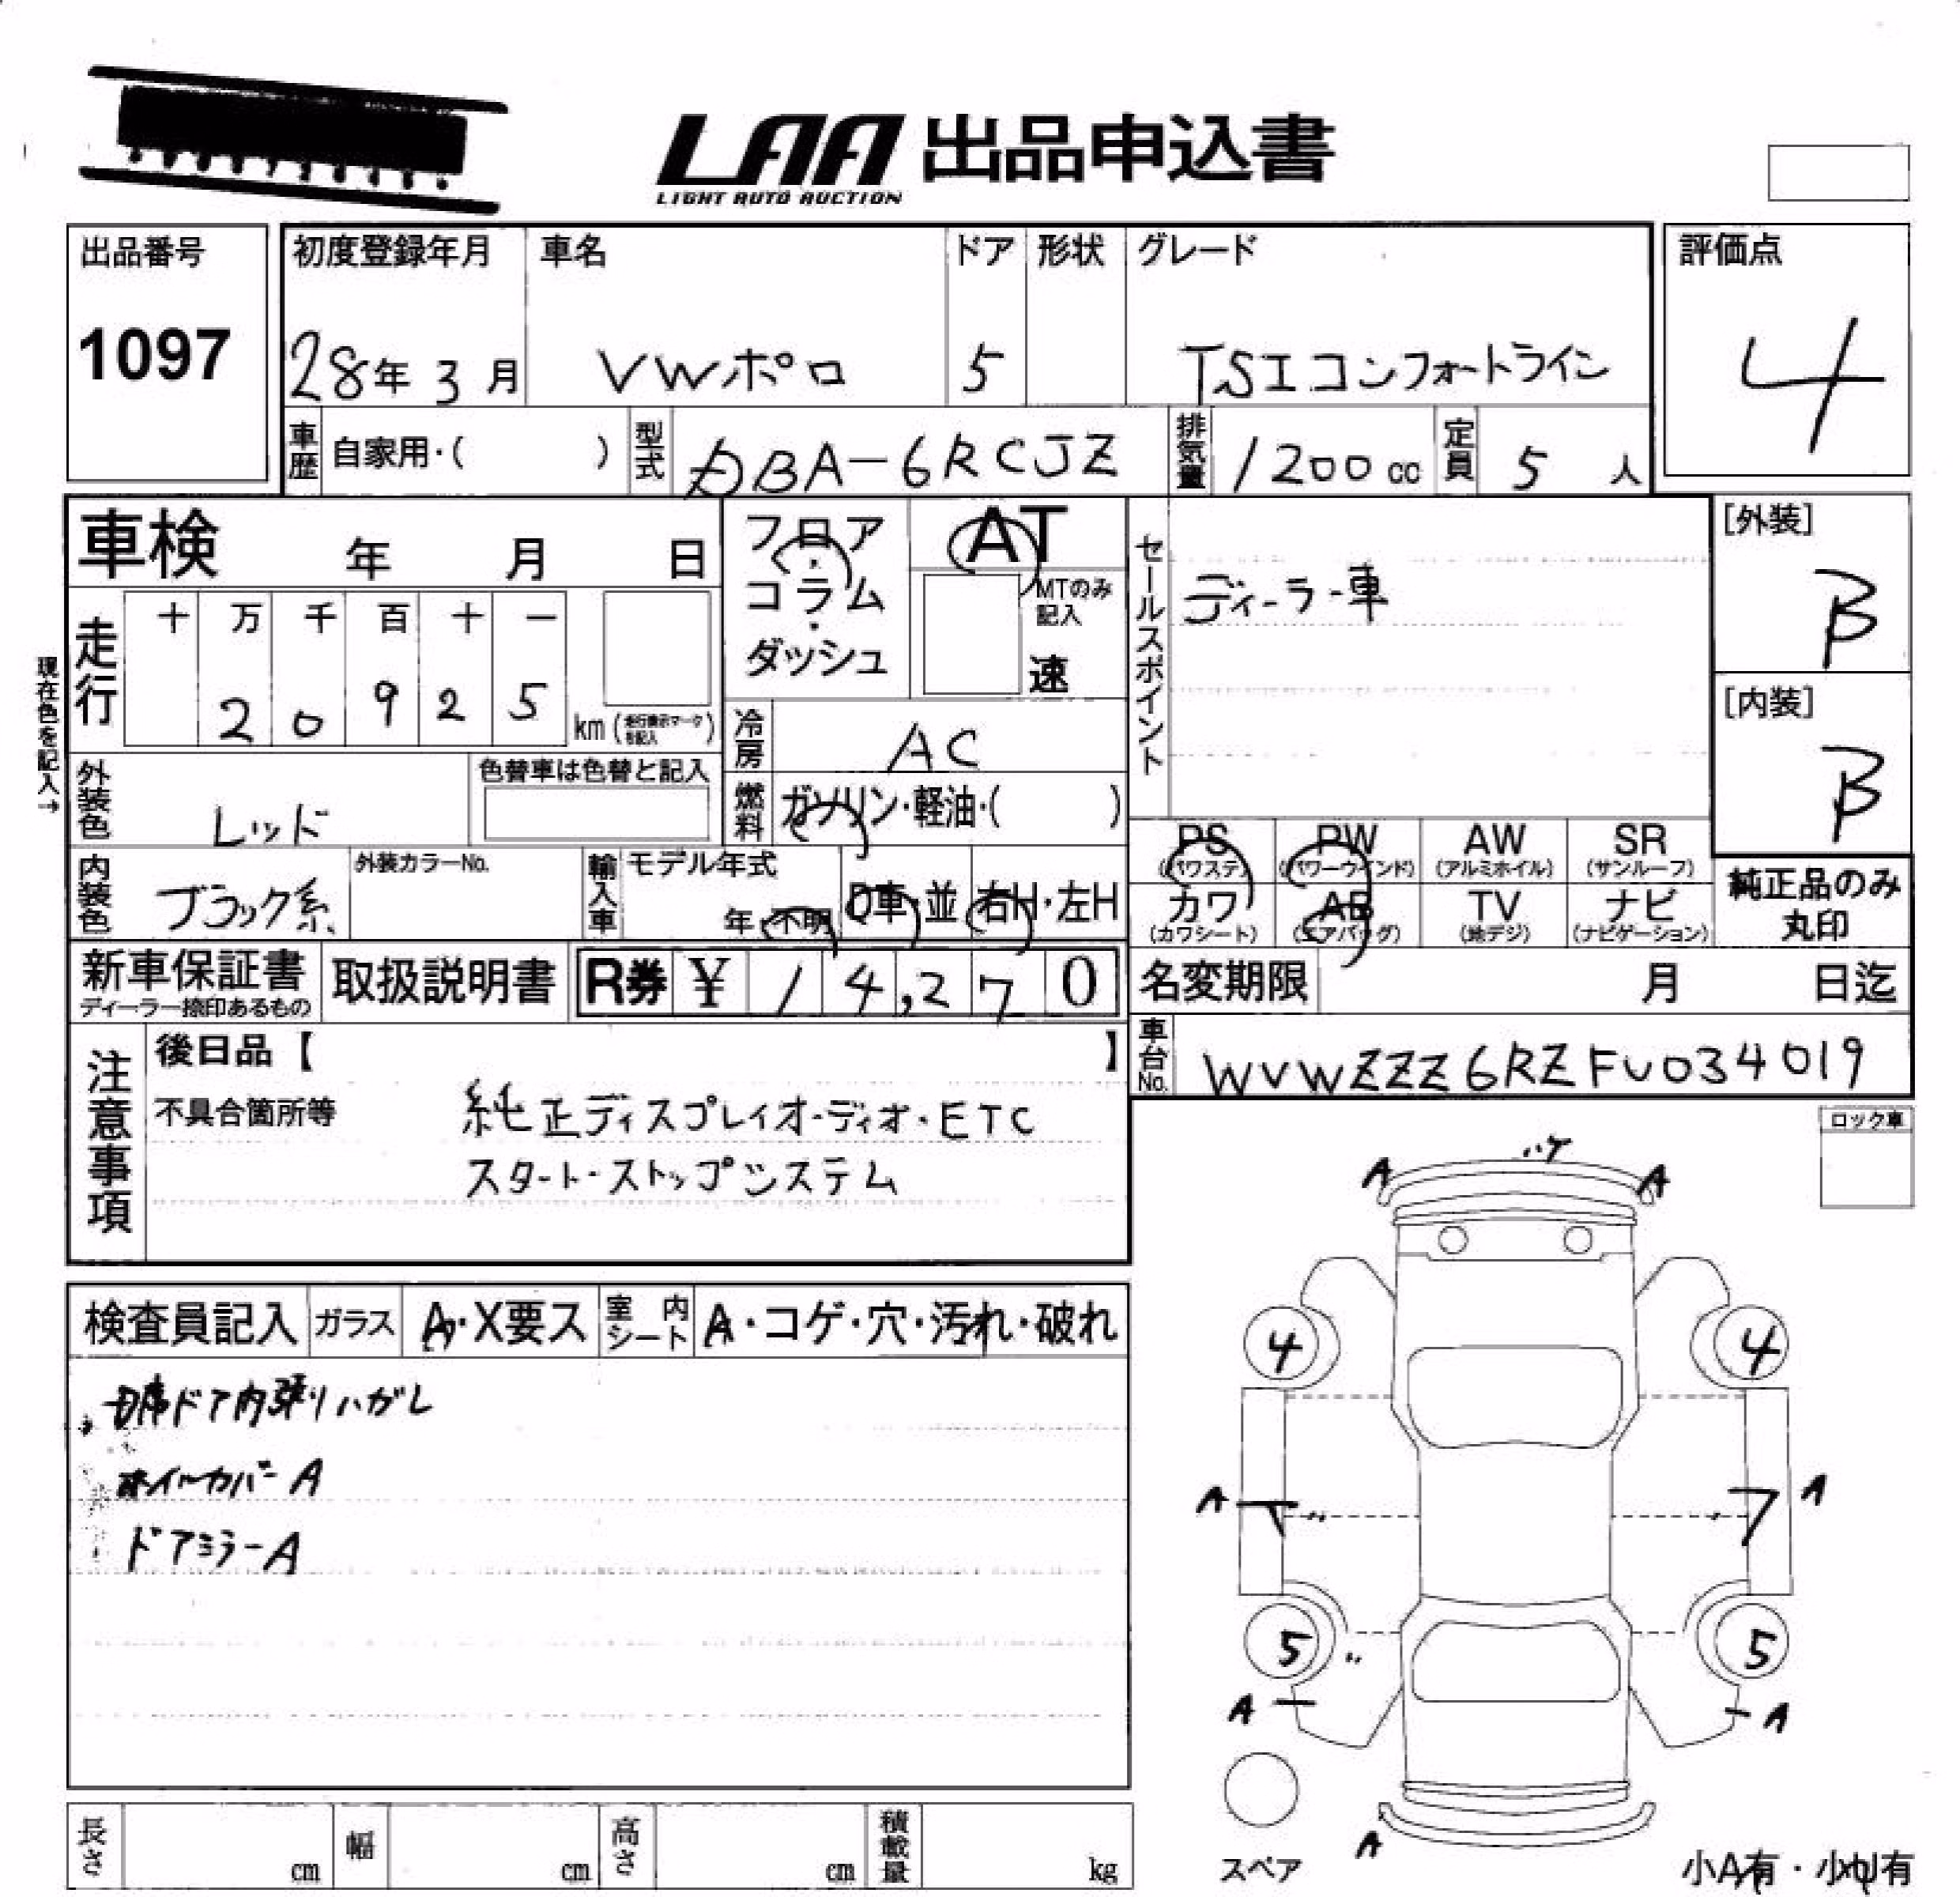 LAA 出品申込書
LIGHT AUTO AUCTION
出品番号
1097
初度登録年月 車名 ドア 形状 グレード
28年 3月 VWポロ 5 TSIコンフォートライン
評価点
4
車歴 自家用・( ) 型式 DBA-6RCJZ 排気量 1200cc 定員 5人
車検 年 月 日
フロア・コラム・ダッシュ
AT
MTのみ記入
速
セールスポイント
ディーラー車
[外装]
B
[内装]
B
現在色を記入→
走行
十 万 千 百 十 一
2 0 9 2 5 km (走行表示マークを記入)
冷房 AC
外装色 レッド
色替車は色替と記入
燃料 ガソリン・軽油・( )
内装色 ブラック系
外装カラーNo.
輸入車 モデル年式
年・不明
D車・並 右H・左H
PS PW AW SR
(パワステ) (パワーウインド) (アルミホイル) (サンルーフ)
カワ AB TV ナビ
(カワシート) (エアバッグ) (地デジ) (ナビゲーション)
純正品のみ
丸印
新車保証書
ディーラー捺印あるもの
取扱説明書
R券 ¥ 14,270
名変期限 月 日迄
車台No. WVWZZZ6RZFU034019
注意事項
後日品【 】
不具合箇所等 純正ディスプレイオーディオ・ETC
スタート・ストップシステム
ロック車
検査員記入 ガラス A・X要ス 室内シート A・コゲ・穴・汚れ・破れ
D席ドア内張りハガレ
ホイルカバーA
ドアミラーA
A ハゲ A
4 4
A A
5 5
A A
A
スペア
小A有・小U有
長さ cm 幅 cm 高さ cm 積載量 kg